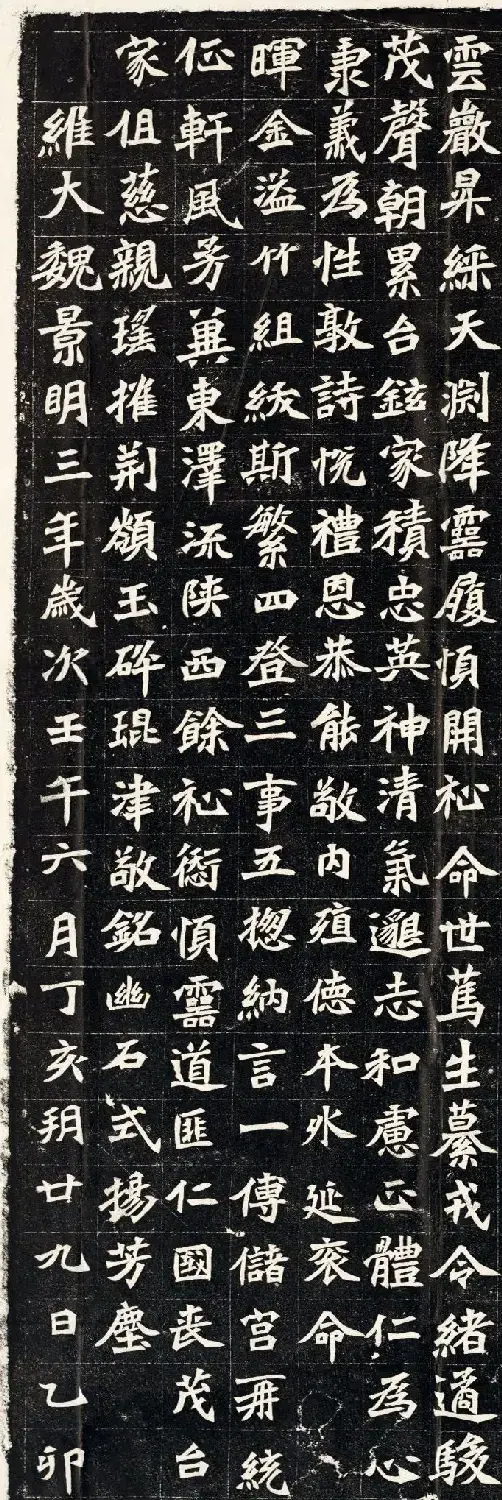 雲巖昇綵天渕降靈履順開祉命世篤生纂戎令緒遹駿
茂聲朝累台鉉家積忠英神清氣邈志和慮正體仁為心
秉義為性敦詩悅禮恩恭能敬內殖德本外延袞命
暉金溢竹組紱斯繁四登三事五揔納言一傅儲宮再統
征軒風芳冀東澤流陝西餘祉愆順靈道匪仁國喪茂台
家徂慈親瑤摧荊巔玉碎琨津敬銘幽石式揚芳塵
維大魏景明三年歲次壬午六月丁亥朔廿九日乙卯